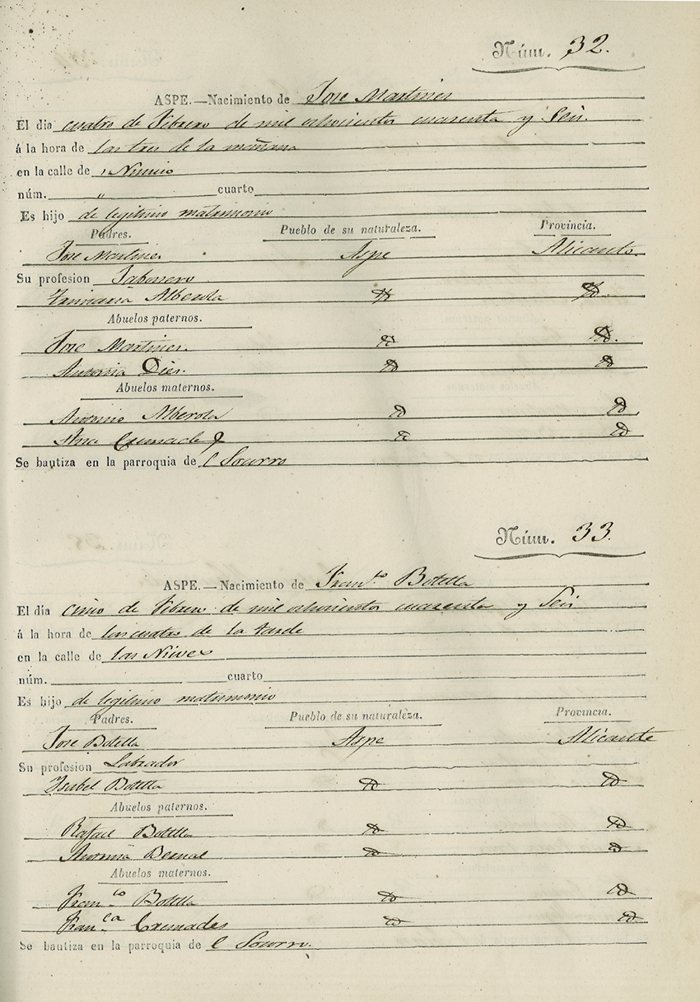 Núm. 32.
ASPE.—Nacimiento de Jose Martines
El día cuatro de Febrero de mil ochocientos cuarenta y Seis.
á la hora de las tres de la mañana
en la calle de
núm. „ cuarto
Es hijo de legitimo matrimonio
Padres. Pueblo de su naturaleza. Provincia.
Jose Martines Aspe Alicante.
Su profesion Jabonero
Alberola id id.
Abuelos paternos.
Jose Martines id id.
Antonia Dies. id id
Abuelos maternos.
Antonio Alberola id id
Ana Cremades id id
Se bautiza en la parroquia de l Socorro
Núm. 33.
ASPE.—Nacimiento de Fran.co Botella
El día cinco de Febrero de mil ochocientos cuarenta y Seis
á la hora de las cuatro de la tarde
en la calle de las Nieves
núm. cuarto
Es hijo de legitimo matrimonio
Padres. Pueblo de su naturaleza. Provincia.
Jose Botella Aspe Alicante
Su profesion Labrador
Isabel Botella id id
Abuelos paternos.
Rafael Botella id id
Antonia Bernal id id
Abuelos maternos.
Fran.co Botella id id
Fran.ca Cremades id id
Se bautiza en la parroquia de l Socorro.